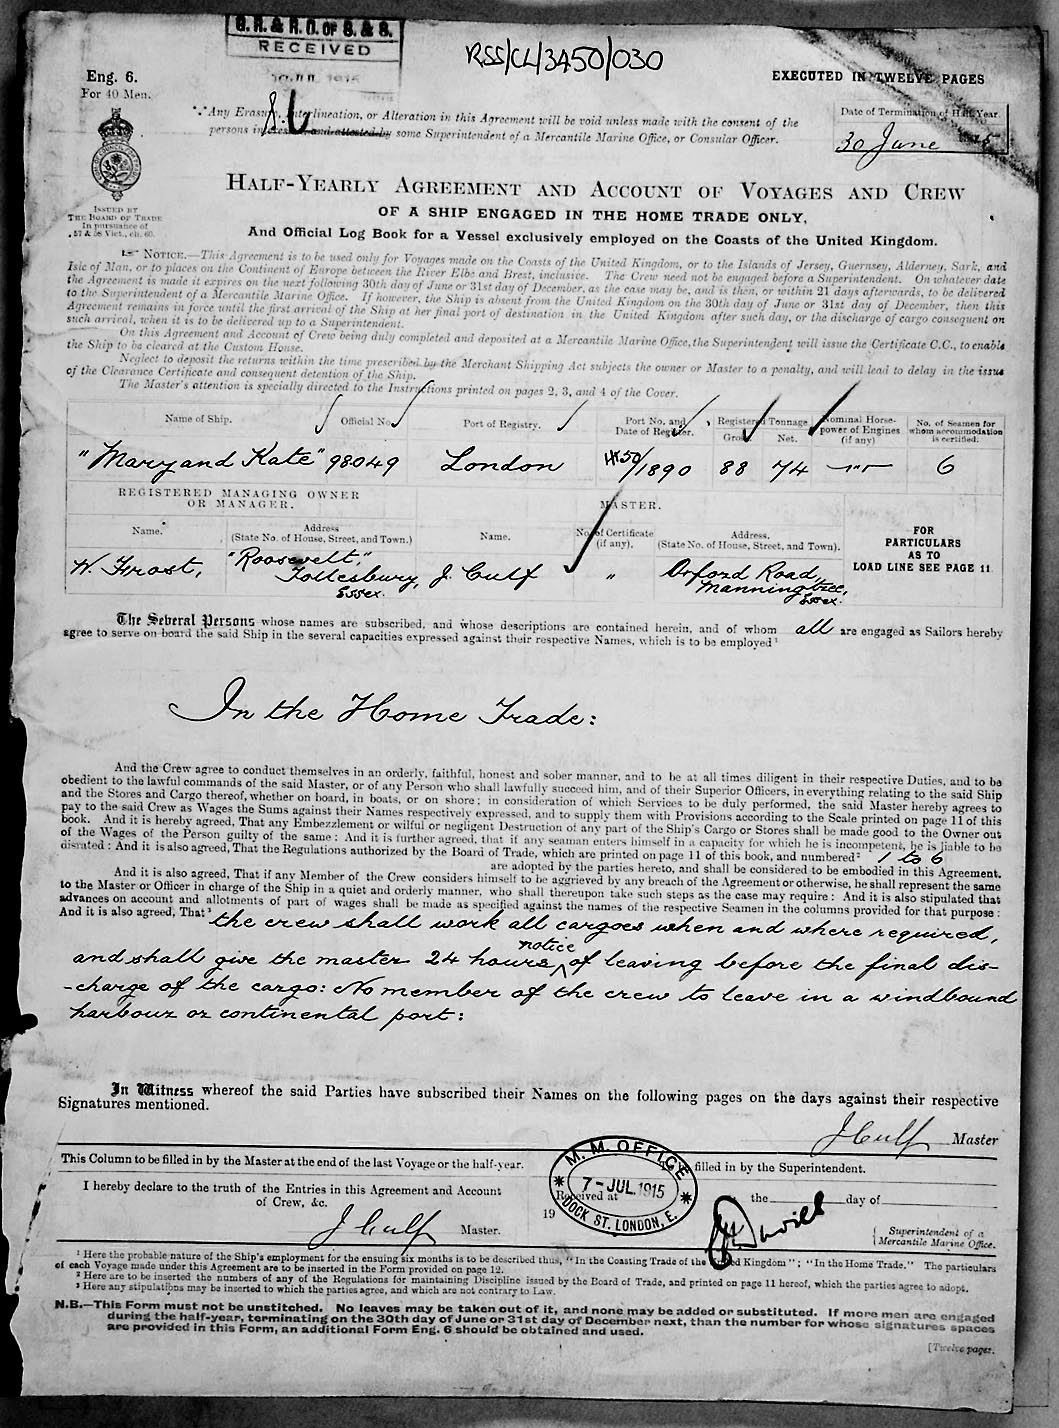 G.R. & R.O. OF S. & S.
RECEIVED
RSS/CL/3450/030
Eng. 6.
For 40 Men.
EXECUTED IN TWELVE PAGES
Any Erasure, Interlineation, or Alteration in this Agreement will be void unless made with the consent of the
persons interested, and attested by some Superintendent of a Mercantile Marine Office, or Consular Officer.
Date of Termination of Half Year.
30 June 15
ISSUED BY
THE BOARD OF TRADE
In pursuance of
57 & 58 Vict., ch. 60.
HALF-YEARLY AGREEMENT AND ACCOUNT OF VOYAGES AND CREW
OF A SHIP ENGAGED IN THE HOME TRADE ONLY,
And Official Log Book for a Vessel exclusively employed on the Coasts of the United Kingdom.
NOTICE.—This Agreement is to be used only for Voyages made on the Coasts of the United Kingdom, or to the Islands of Jersey, Guernsey, Alderney, Sark, and
Isle of Man, or to places on the Continent of Europe between the River Elbe and Brest, inclusive. The Crew need not be engaged before a Superintendent. On whatever date
the Agreement is made it expires on the next following 30th day of June or 31st day of December, as the case may be, and is then, or within 21 days afterwards, to be delivered
to the Superintendent of a Mercantile Marine Office. If however, the Ship is absent from the United Kingdom on the 30th day of June or 31st day of December, then this
Agreement remains in force until the first arrival of the Ship at her final port of destination in the United Kingdom after such day, or the discharge of cargo consequent on
such arrival, when it is to be delivered up to a Superintendent.
On this Agreement and Account of Crew being duly completed and deposited at a Mercantile Marine Office, the Superintendent will issue the Certificate C.C., to enable
the Ship to be cleared at the Custom House.
Neglect to deposit the returns within the time prescribed by the Merchant Shipping Act subjects the owner or Master to a penalty, and will lead to delay in the issue
of the Clearance Certificate and consequent detention of the Ship.
The Master's attention is specially directed to the Instructions printed on pages 2, 3, and 4 of the Cover.
Name of Ship. Official No. Port of Registry. Port No. and Date of Register. Registered Tonnage Gross Net. Nominal Horse-power of Engines (if any) No. of Seamen for whom accommodation is certified.
"Mary and Kate" 98049 London 50/1890 88 74 — " — 6
REGISTERED MANAGING OWNER
OR MANAGER.
MASTER.
Name. Address (State No. of House, Street, and Town.) Name. No. of Certificate (if any). Address. (State No. of House, Street, and Town).
FOR
PARTICULARS
AS TO
LOAD LINE SEE PAGE 11
W. Frost, "Roosevelt", Tollesbury, Essex. J. Culf " Orford Road, Manningtree, Essex.
The Several Persons whose names are subscribed, and whose descriptions are contained herein, and of whom all are engaged as Sailors hereby
agree to serve on board the said Ship in the several capacities expressed against their respective Names, which is to be employed¹
In the Home Trade:
And the Crew agree to conduct themselves in an orderly, faithful, honest and sober manner, and to be at all times diligent in their respective Duties, and to be
obedient to the lawful commands of the said Master, or of any Person who shall lawfully succeed him, and of their Superior Officers, in everything relating to the said Ship
and the Stores and Cargo thereof, whether on board, in boats, or on shore; in consideration of which Services to be duly performed, the said Master hereby agrees to
pay to the said Crew as Wages the Sums against their Names respectively expressed, and to supply them with Provisions according to the Scale printed on page 11 of this
book. And it is hereby agreed, That any Embezzlement or wilful or negligent Destruction of any part of the Ship's Cargo or Stores shall be made good to the Owner out
of the Wages of the Person guilty of the same: And it is further agreed, that if any seaman enters himself in a capacity for which he is incompetent, he is liable to be
disrated: And it is also agreed, That the Regulations authorized by the Board of Trade, which are printed on page 11 of this book, and numbered² 1 to 6
are adopted by the parties hereto, and shall be considered to be embodied in this Agreement.
And it is also agreed, That if any Member of the Crew considers himself to be aggrieved by any breach of the Agreement or otherwise, he shall represent the same
to the Master or Officer in charge of the Ship in a quiet and orderly manner, who shall thereupon take such steps as the case may require: And it is also stipulated that
advances on account and allotments of part of wages shall be made as specified against the names of the respective Seamen in the columns provided for that purpose:
And it is also agreed, That³ the crew shall work all cargoes when and where required,
and shall give the master 24 hours notice of leaving before the final dis-
-charge of the cargo: No member of the crew to leave in a windbound
harbour or continental port:
In Witness whereof the said Parties have subscribed their Names on the following pages on the days against their respective
Signatures mentioned.
J Culf Master
This Column to be filled in by the Master at the end of the last Voyage or the half-year.
filled in by the Superintendent.
I hereby declare to the truth of the Entries in this Agreement and Account
of Crew, &c.
J Culf Master.
M. M. OFFICE
7-JUL.1915
DOCK ST. LONDON, E.
Received at the day of
19
Superintendent of a
Mercantile Marine Office.
¹ Here the probable nature of the Ship's employment for the ensuing six months is to be described thus, "In the Coasting Trade of the United Kingdom"; "In the Home Trade." The particulars
of each Voyage made under this Agreement are to be inserted in the Form provided on page 12.
² Here are to be inserted the numbers of any of the Regulations for maintaining Discipline issued by the Board of Trade, and printed on page 11 hereof, which the parties agree to adopt.
³ Here any stipulations may be inserted to which the parties agree, and which are not contrary to Law.
N.B.—This Form must not be unstitched. No leaves may be taken out of it, and none may be added or substituted. If more men are engaged
during the half-year, terminating on the 30th day of June or 31st day of December next, than the number for whose signatures spaces
are provided in this Form, an additional Form Eng. 6 should be obtained and used.
[Twelve pages.